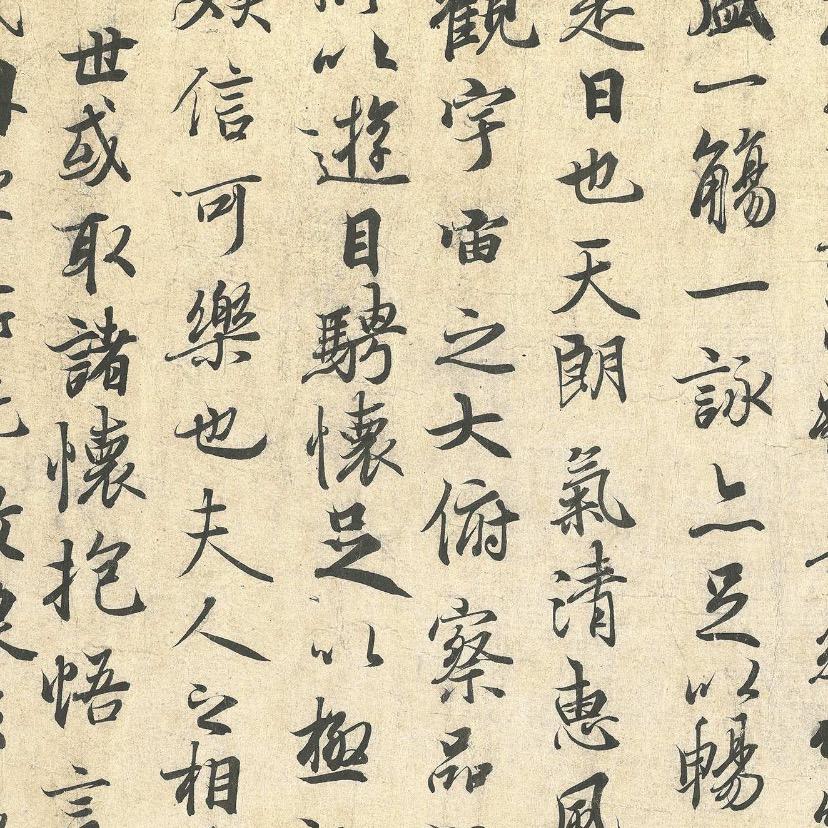 盛一觴一詠亦足以暢
是日也天朗氣清惠風
觀宇宙之大俯察品
所以遊目騁懷足以極
娛信可樂也夫人之相
世或取諸懷抱悟言